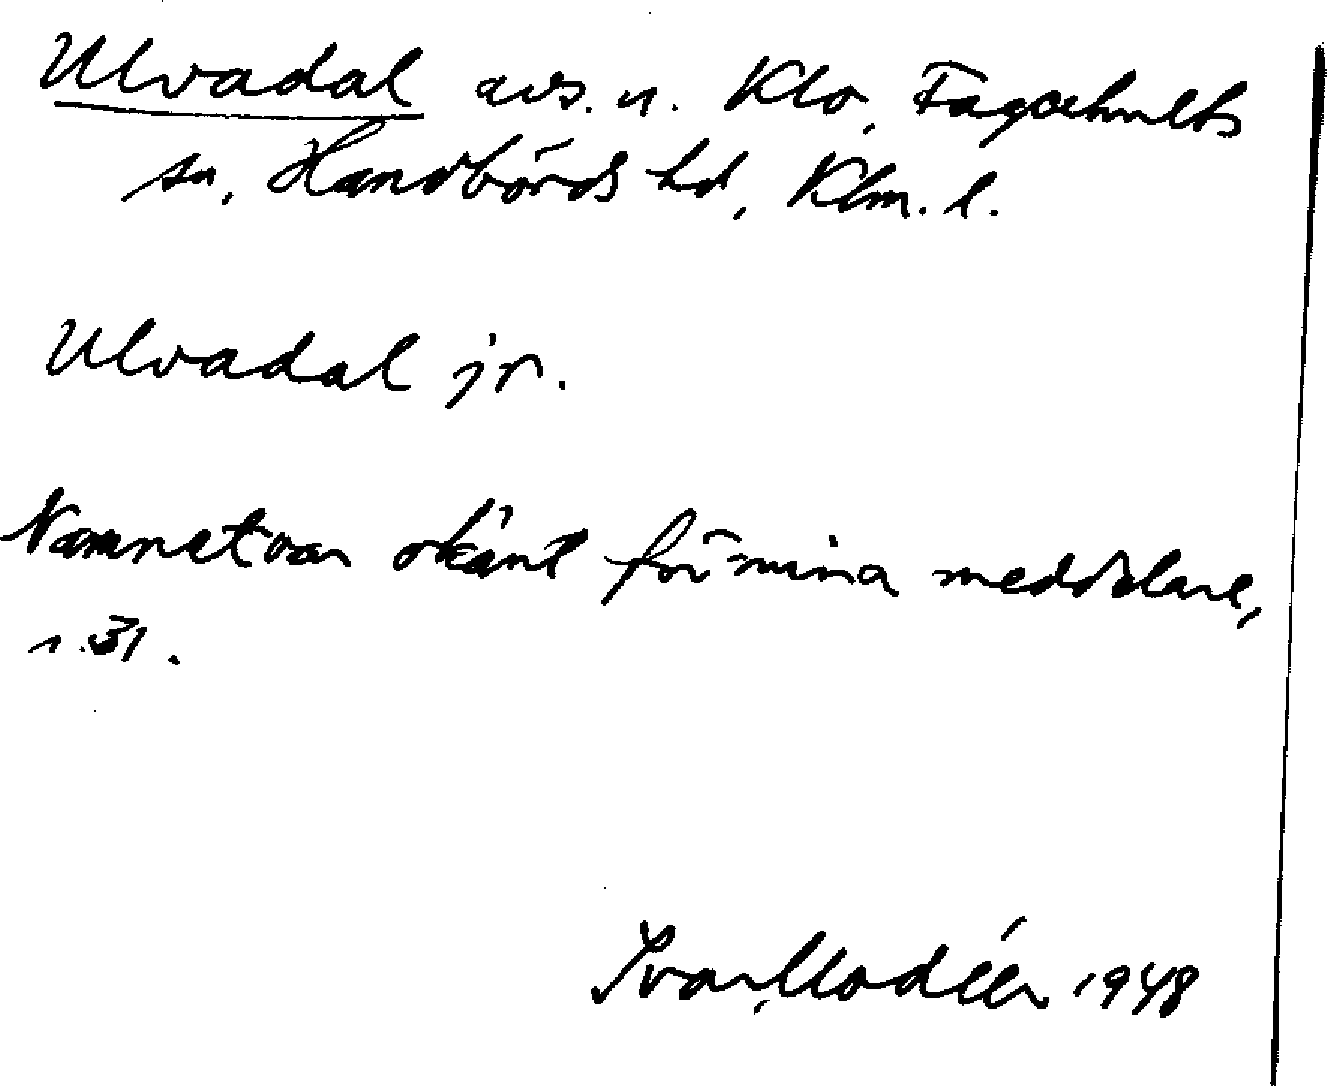 Ulvadal avs. u. Klo, Fagerhults
sn, Handbörds hd, Klm. l.
Ulvadal jr.
Namnet var okänt för mina meddelare,
1948